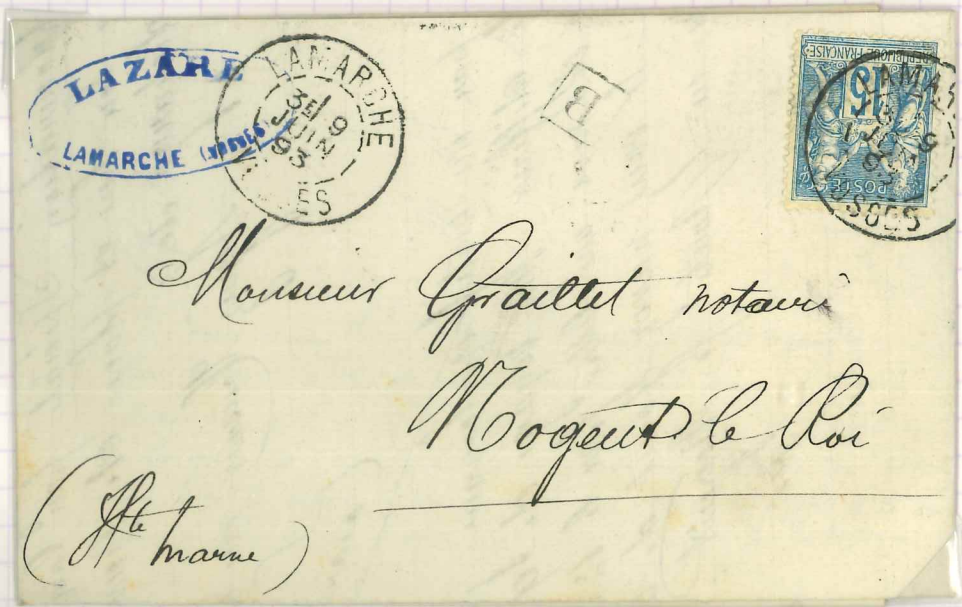 LAZARE
LAMARCHE (VOSGES)
LAMARCHE
3E 9
JUIN
93
B
REPUBLIQUE FRANCAISE
15
POSTES
LAMAR
9
JUIN
93
VOSGES
Monsieur Graillet notaire
Nogent le Roi
(Hte
Marne)